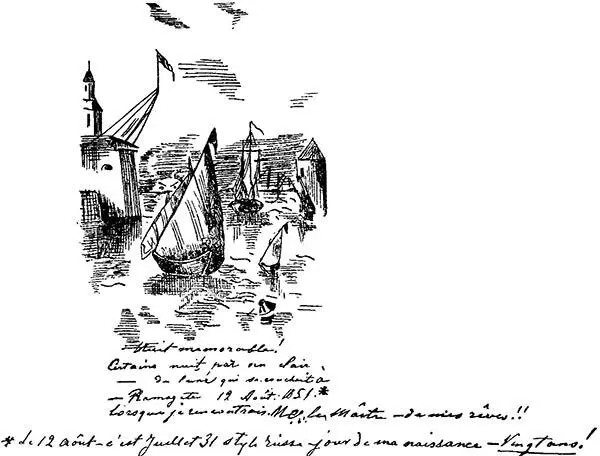 Nuit memorable!
Certaine nuit par un clair
— de lune qui se couchait a
— Ramsgate 12 Août. 1851*
lorsque je rencontrais M∴ le Maître — de mes rêves!!
* Le 12 Août — c'est Juillet 31 style russe — jour de ma naissance — Vingt ans!